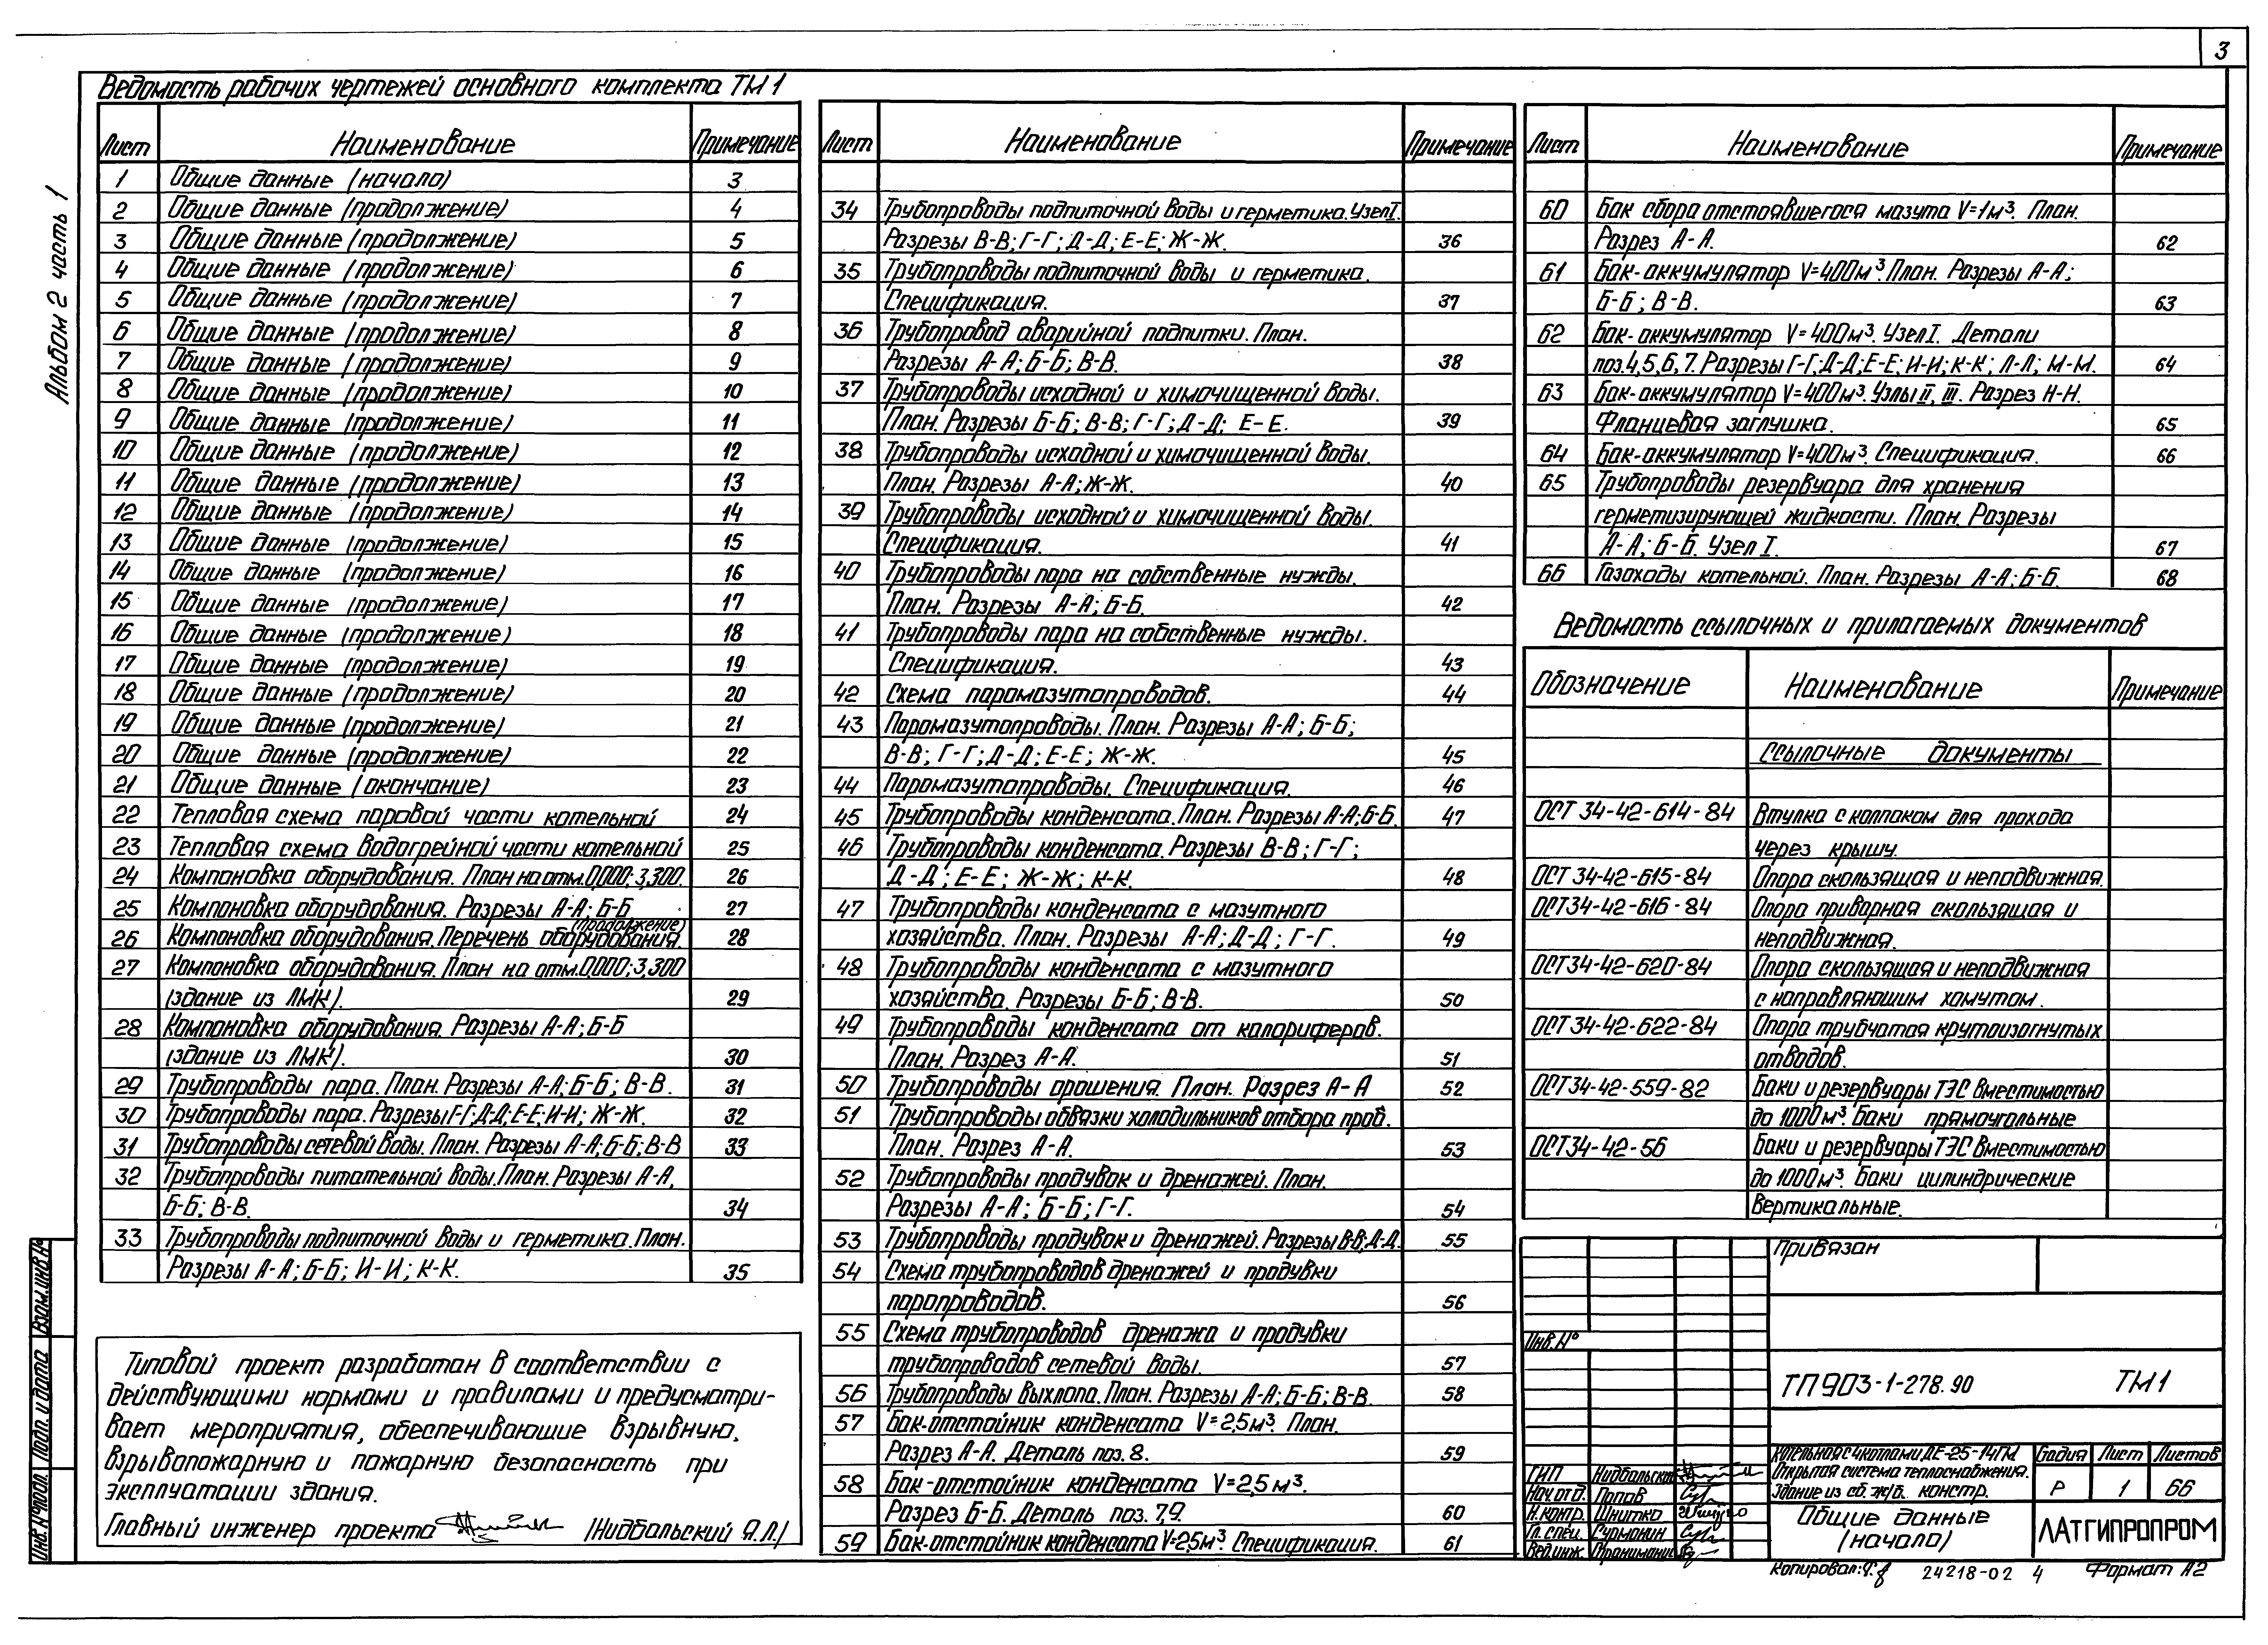 3
Альбом 2 часть 1
Ведомость рабочих чертежей основного комплекта ТМ1
Лист Наименование Примечание
1 Общие данные (начало) 3
2 Общие данные (продолжение) 4
3 Общие данные (продолжение) 5
4 Общие данные (продолжение) 6
5 Общие данные (продолжение) 7
6 Общие данные (продолжение) 8
7 Общие данные (продолжение) 9
8 Общие данные (продолжение) 10
9 Общие данные (продолжение) 11
10 Общие данные (продолжение) 12
11 Общие данные (продолжение) 13
12 Общие данные (продолжение) 14
13 Общие данные (продолжение) 15
14 Общие данные (продолжение) 16
15 Общие данные (продолжение) 17
16 Общие данные (продолжение) 18
17 Общие данные (продолжение) 19
18 Общие данные (продолжение) 20
19 Общие данные (продолжение) 21
20 Общие данные (продолжение) 22
21 Общие данные (окончание) 23
22 Тепловая схема паровой части котельной 24
23 Тепловая схема водогрейной части котельной 25
24 Компоновка оборудования. План на отм. 0,000; 3,300. 26
25 Компоновка оборудования. Разрезы А-А; Б-Б 27
(продолжение)
26 Компоновка оборудования. Перечень оборудования. 28
27 Компоновка оборудования. План на отм. 0,000; 3,300
(здание из ЛМК). 29
28 Компоновка оборудования. Разрезы А-А; Б-Б
(здание из ЛМК). 30
29 Трубопроводы пара. План. Разрезы А-А; Б-Б; В-В. 31
30 Трубопроводы пара. Разрезы Г-Г; Д-Д; Е-Е; И-И; Ж-Ж. 32
31 Трубопроводы сетевой воды. План. Разрезы А-А; Б-Б; В-В 33
32 Трубопроводы питательной воды. План. Разрезы А-А,
Б-Б; В-В. 34
33 Трубопроводы подпиточной воды и герметика. План.
Разрезы А-А; Б-Б; И-И; К-К. 35
Типовой проект разработан в соответствии с
действующими нормами и правилами и предусматри-
вает мероприятия, обеспечивающие взрывную,
взрывопожарную и пожарную безопасность при
эксплуатации здания.
Главный инженер проекта (Нидбальский Я.Л)
Лист Наименование Примечание
34 Трубопроводы подпиточной воды и герметика. Узел I.
Разрезы В-В; Г-Г; Д-Д; Е-Е; Ж-Ж. 36
35 Трубопроводы подпиточной воды и герметика.
Спецификация. 37
36 Трубопровод аварийной подпитки. План.
Разрезы А-А; Б-Б; В-В. 38
37 Трубопроводы исходной и химочищенной воды.
План. Разрезы Б-Б; В-В; Г-Г; Д-Д; Е-Е. 39
38 Трубопроводы исходной и химочищенной воды.
План. Разрезы А-А; Ж-Ж. 40
39 Трубопроводы исходной и химочищенной воды.
Спецификация. 41
40 Трубопроводы пара на собственные нужды.
План. Разрезы А-А; Б-Б. 42
41 Трубопроводы пара на собственные нужды.
Спецификация. 43
42 Схема паромазутопроводов. 44
43 Паромазутопроводы. План. Разрезы А-А; Б-Б;
В-В; Г-Г; Д-Д; Е-Е; Ж-Ж. 45
44 Паромазутопроводы. Спецификация. 46
45 Трубопроводы конденсата. План. Разрезы А-А; Б-Б. 47
46 Трубопроводы конденсата. Разрезы В-В; Г-Г;
Д-Д; Е-Е; Ж-Ж; К-К. 48
47 Трубопроводы конденсата с мазутного
хозяйства. План. Разрезы А-А; Д-Д; Г-Г. 49
48 Трубопроводы конденсата с мазутного
хозяйства. Разрезы Б-Б; В-В. 50
49 Трубопроводы конденсата от калориферов.
План. Разрез А-А. 51
50 Трубопроводы орошения. План. Разрез А-А 52
51 Трубопроводы обвязки холодильников отбора проб.
План. Разрез А-А. 53
52 Трубопроводы продувок и дренажей. План.
Разрезы А-А; Б-Б; Г-Г. 54
53 Трубопроводы продувок и дренажей. Разрезы В-В; Д-Д. 55
54 Схема трубопроводов дренажей и продувки
паропроводов. 56
55 Схема трубопроводов дренажа и продувки
трубопроводов сетевой воды. 57
56 Трубопроводы выхлопа. План. Разрезы А-А; Б-Б; В-В. 58
57 Бак-отстойник конденсата V=2,5м³. План.
Разрез А-А. Деталь поз. 8. 59
58 Бак-отстойник конденсата V=2,5м³.
Разрез Б-Б. Деталь поз. 7,9. 60
59 Бак-отстойник конденсата V=2,5м³. Спецификация. 61
Лист Наименование Примечание
60 Бак сбора отстоявшегося мазута V=1м³. План.
Разрез А-А. 62
61 Бак-аккумулятор V=400м³. План. Разрезы А-А;
Б-Б; В-В. 63
62 Бак-аккумулятор V=400м³. Узел I. Детали
поз.4,5,6,7. Разрезы Г-Г; Д-Д; Е-Е; И-И; К-К; Л-Л; М-М. 64
63 Бак-аккумулятор V=400м³. Узлы II, III. Разрез Н-Н.
Фланцевая заглушка. 65
64 Бак-аккумулятор V=400м³. Спецификация. 66
65 Трубопроводы резервуара для хранения
герметизирующей жидкости. План. Разрезы
А-А; Б-Б. Узел I. 67
66 Газоходы котельной. План. Разрезы А-А; Б-Б. 68
Ведомость ссылочных и прилагаемых документов
Обозначение Наименование Примечание
Ссылочные документы
ОСТ 34-42-614-84 Втулка с колпаком для прохода
через крышу.
ОСТ 34-42-615-84 Опора скользящая и неподвижная.
ОСТ34-42-616-84 Опора приварная скользящая и
неподвижная.
ОСТ34-42-620-84 Опора скользящая и неподвижная
с направляющим хомутом.
ОСТ 34-42-622-84 Опора трубчатая крутоизогнутых
отводов.
ОСТ34-42-559-82 Баки и резервуары ТЭС вместимостью
до 1000м³. Баки прямоугольные
ОСТ34-42-56 Баки и резервуары ТЭС вместимостью
до 1000м³. Баки цилиндрические
вертикальные.
Привязан
Инв.№
ТП 903-1-278.90 ТМ1
Котельная с 4 котлами ДЕ-25-14ГМ.
Открытая система теплоснабжения.
Здание из сб. ж/б. констр.
Стадия Лист Листов
Р 1 66
ГИП Нидбальский
Нач.отд. Попов
Н.контр. Шнитко
Гл.спец. Сурмонин
Вед.инж.
Общие данные
(начало)
ЛАТГИПРОПРОМ
Копировал: 24218-02 4 Формат А2
Взам.инв.№
Подп. и дата
Инв.№подл.